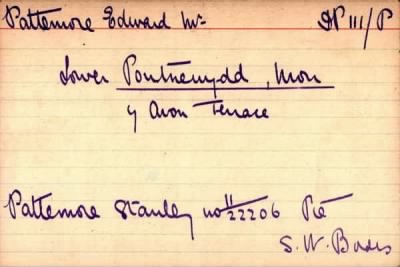 Pattemore Edward Wm DP 111/P
Lower Pontnewydd, Mon
4 Avon Terrace
Pattemore Stanley no 11/22206 Pte
S. W. Bords